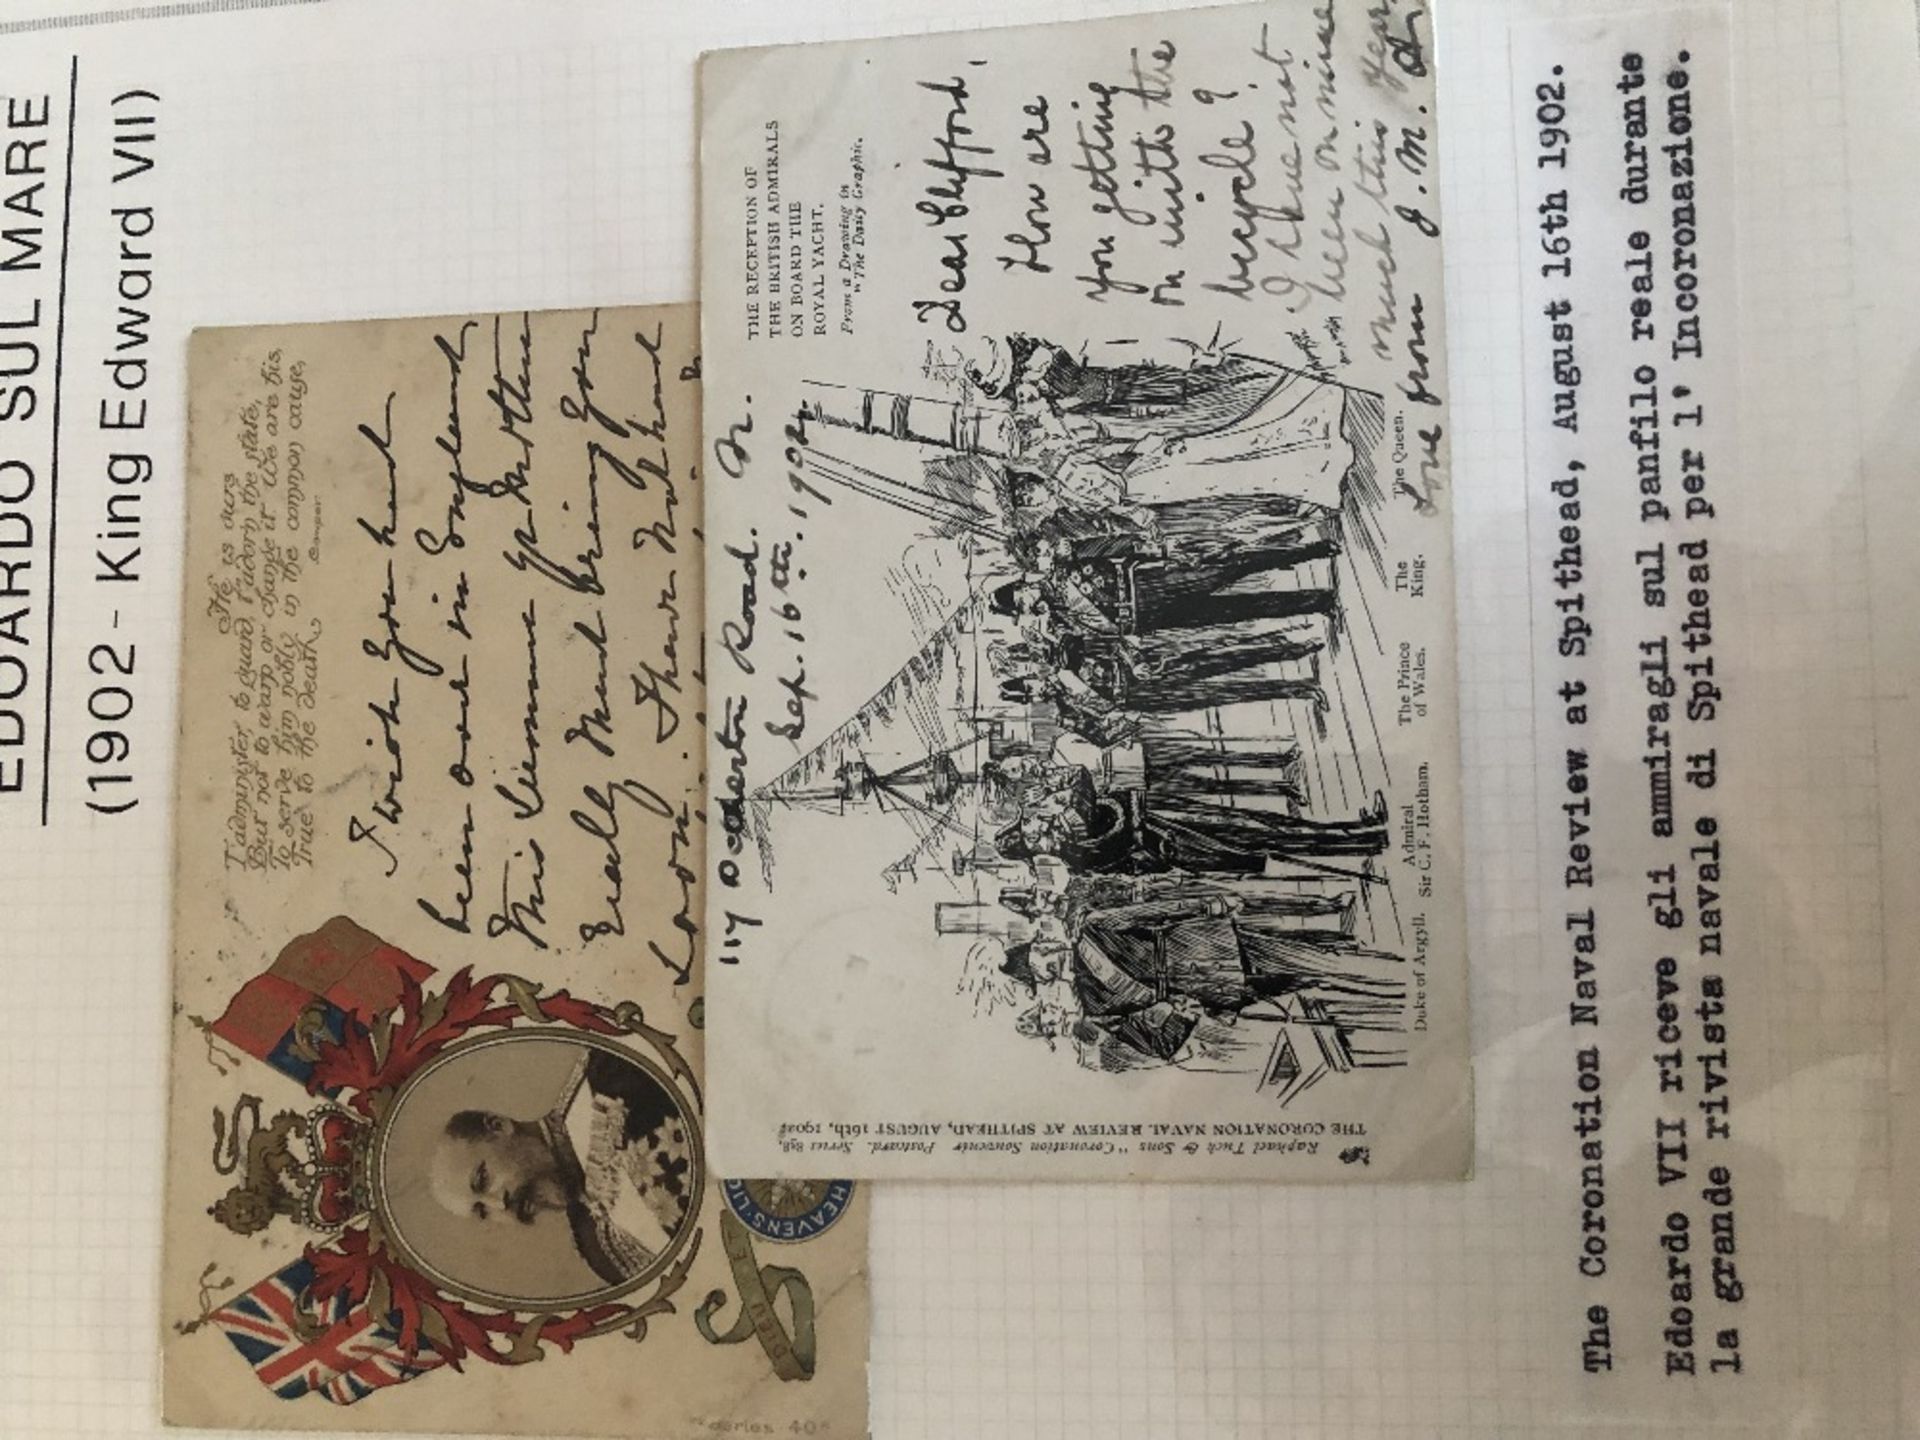 EDOARDO SUL MARE
(1902 - King Edward VII)
He is ours
T'administer, to guard, t'adorn the state,
But not to warp or change it. We are his,
To serve him nobly in the common cause,
True to the death
Cowper
I wish you had
been over in England
this Summer Gp Mother
Really must bring you
Soon. There Not had
DIEU ET
HEAVEN'S LIG
series 40
117 Road. N.
Sep. 16th. 1902.
THE RECEPTION OF
THE BRITISH ADMIRALS
ON BOARD THE
ROYAL YACHT.
From a Drawing in
"The Daily Graphic.
Dear Clifford,
How are
you getting
on with the
bicycle?
I have not
been on mine
much this year,
Love from J. M.
Duke of Argyll.
Admiral
Sir C. F. Hotham.
The Prince
of Wales.
The
King.
The Queen.
Raphael Tuck & Sons "Coronation Souvenir Postcard. Series 898,
THE CORONATION NAVAL REVIEW AT SPITHEAD, AUGUST 16th, 1902.
The Coronation Naval Review at Spithead, August 16th 1902.
Edoardo VII riceve gli ammiragli sul panfilo reale durante
la grande rivista navale di Spithead per l' Incoronazione.